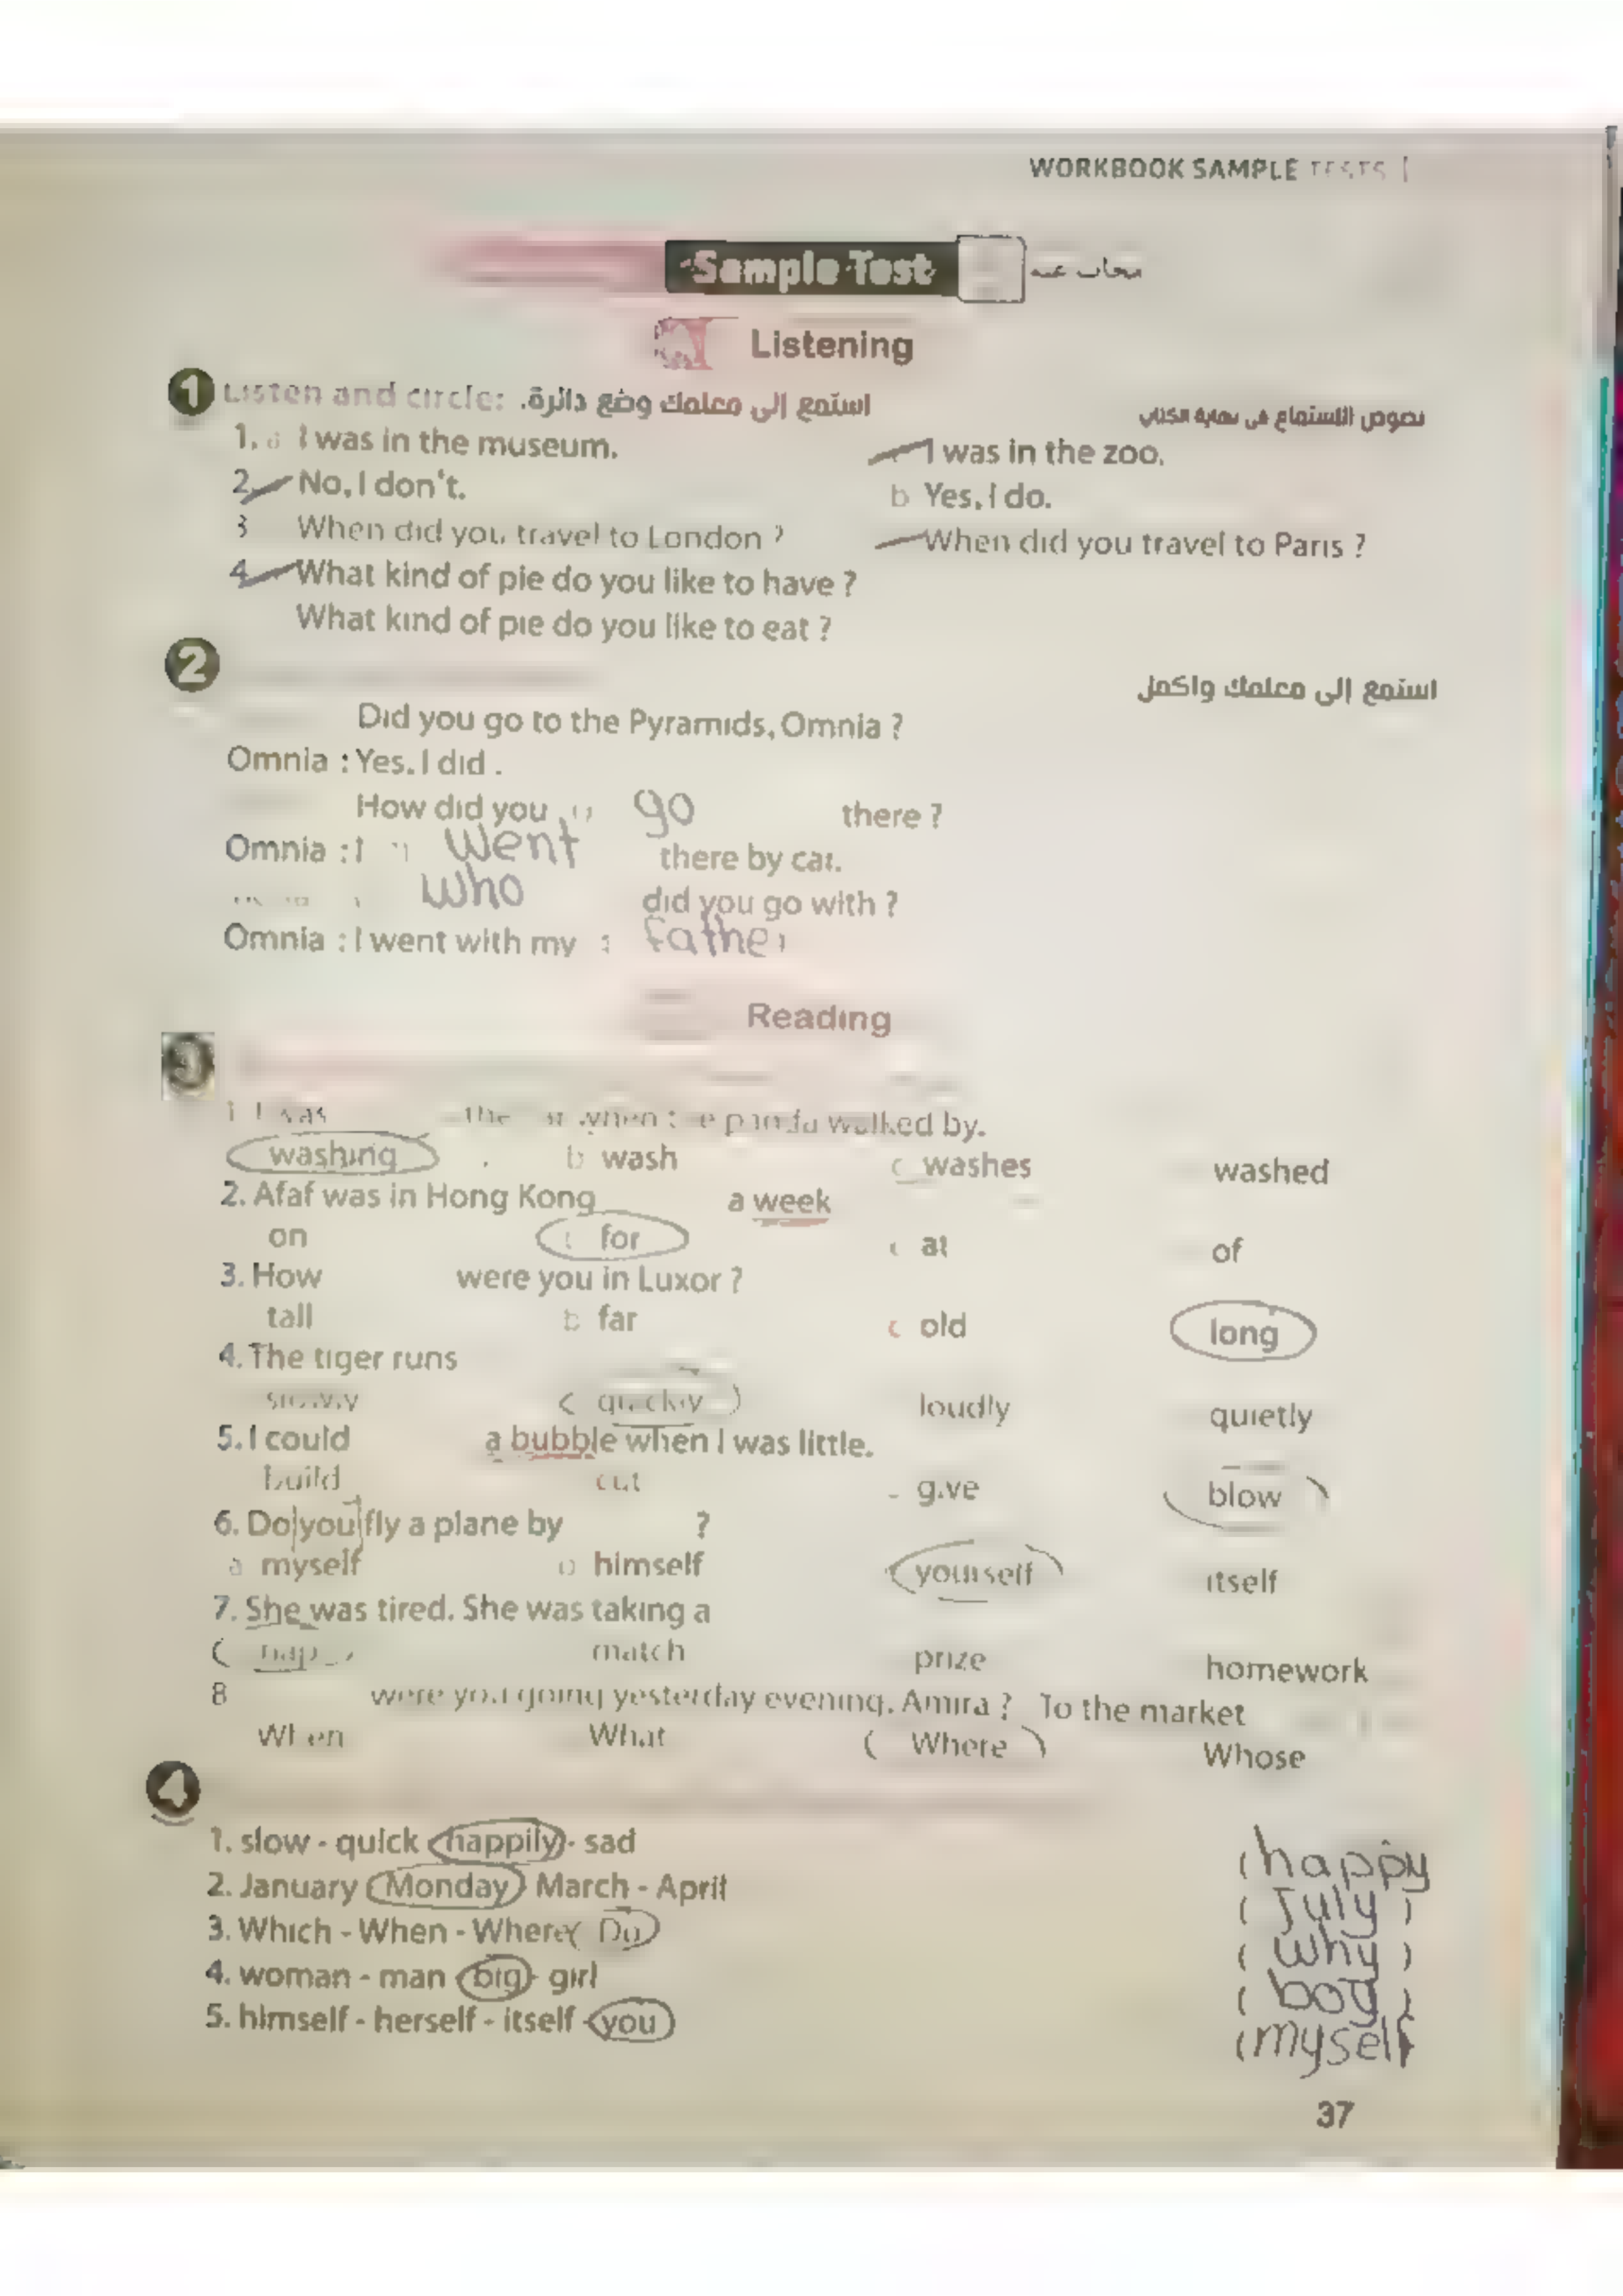 WORKBOOK SAMPLE TESTS
Sample Test
مجاب عنه
Listening
1 Listen and circle: استمع إلى معلمك وضع دائرة.
نصوص الاستماع في نهاية الكتاب
1. a I was in the museum. I was in the zoo.
2. No, I don't. b Yes, I do.
3 When did you travel to London ? When did you travel to Paris ?
4. What kind of pie do you like to have ?
What kind of pie do you like to eat ?
2 استمع إلى معلمك واكمل
Did you go to the Pyramids, Omnia ?
Omnia : Yes. I did .
How did you go there ?
Omnia : I went there by car.
who did you go with ?
Omnia : I went with my father
Reading
3
1 I was the when the panda walked by.
washing b wash c washes washed
2. Afaf was in Hong Kong a week
on for c at of
3. How were you in Luxor ?
tall b far c old long
4. The tiger runs
slowly quickly loudly quietly
5. I could a bubble when I was little.
build cut give blow
6. Do you fly a plane by ?
a myself b himself yourself itself
7. She was tired. She was taking a
nap match prize homework
8 were you going yesterday evening, Amira ? To the market
When What Where Whose
4
1. slow - quick happily - sad ( happy
2. January Monday March - April ( July )
3. Which - When - Where Do ( why )
4. woman - man big - girl ( boy )
5. himself - herself - itself - you ( myself
37